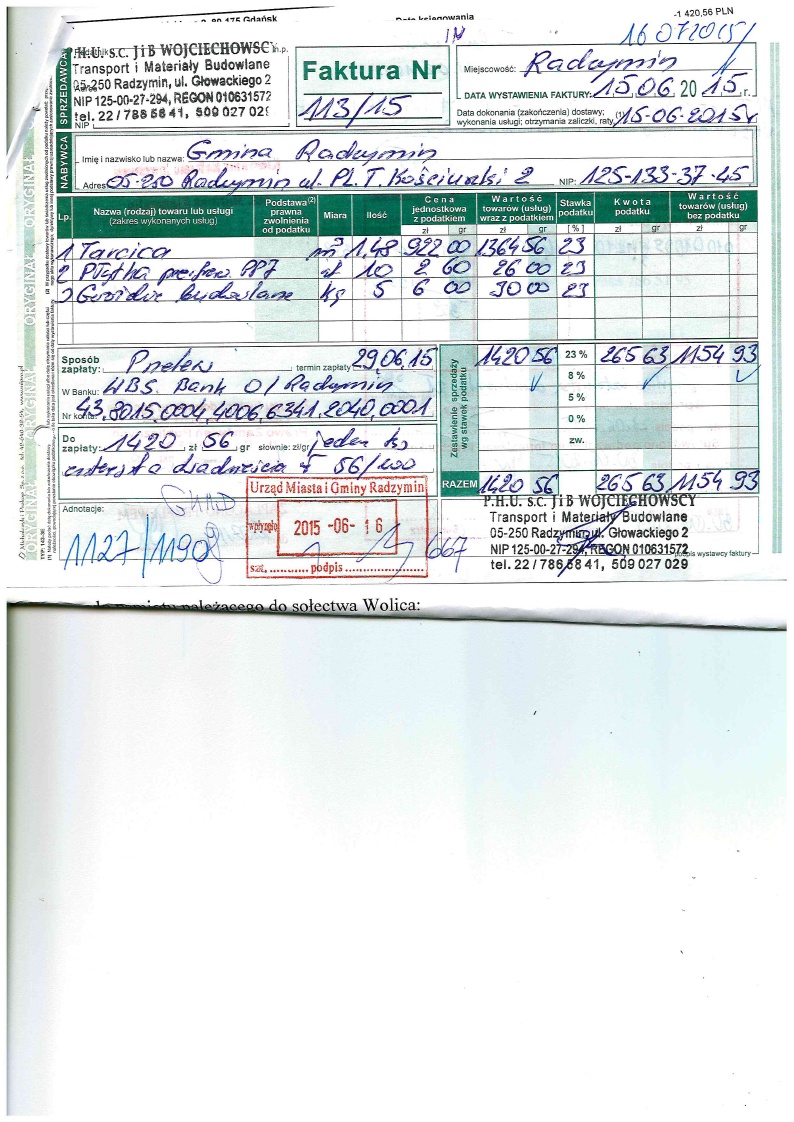 80-175 Gdańsk
Data księgowania
-1 420,56 PLN
16.07.2015
SPRZEDAWCA
P.H.U. S.C. J i B WOJCIECHOWSCY m.p.
Transport i Materiały Budowlane
05-250 Radzymin, ul. Głowackiego 2
NIP 125-00-27-294, REGON 010631572
tel. 22 / 786 58 41, 509 027 029
NIP
Faktura Nr
113/15
Miejscowość: Radzymin
DATA WYSTAWIENIA FAKTURY: 15.06.2015 r.
Data dokonania (zakończenia) dostawy;
wykonania usługi; otrzymania zaliczki, raty 15-06-2015r
NABYWCA
Imię i nazwisko lub nazwa: Gmina Radzymin
Adres 05-250 Radzymin ul. Pl. T. Kościuszki 2 NIP: 125-133-37-45
Lp. Nazwa (rodzaj) towaru lub usługi (zakres wykonanych usług) Podstawa(2) prawna zwolnienia od podatku Miara Ilość Cena jednostkowa z podatkiem Wartość towarów (usług) wraz z podatkiem Stawka podatku Kwota podatku Wartość towarów (usług) bez podatku
zł gr zł gr [%] zł gr zł gr
1 Tarcica m³ 1,48 922 00 1364 56 23
2 Płytka 10 2 60 26 00 23
3 Gwoździe budowlane kg 5 6 00 30 00 23
Sposób zapłaty: Przelew termin zapłaty 29.06.15
W Banku: WBS. Bank O/Radzymin
Nr konta: 43.8015.0004.4006.6341.2040.0001
Zestawienie sprzedaży wg stawek podatku
1420 56 23 % 265 63 1154 93
8 %
5 %
0 %
zw.
RAZEM 1420 56 265 63 1154 93
Do zapłaty: 1420 zł 56 gr słownie: zł/gr jeden tys
czterysta dwadzieścia zł 56/100
Adnotacje:
1127/1190
Urząd Miasta i Gminy Radzymin
wpłynęło 2015 -06- 16
szt. podpis
667
P.H.U. S.C. J i B WOJCIECHOWSCY
Transport i Materiały Budowlane
05-250 Radzymin, ul. Głowackiego 2
NIP 125-00-27-294, REGON 010631572
tel. 22 / 786 58 41, 509 027 029
podpis wystawcy faktury
ORYGINAŁ ORYGINAŁ ORYGINAŁ ORYGINAŁ
należącego do sołectwa Wolica: